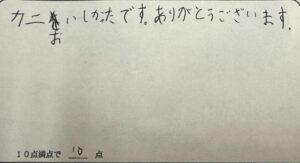 カニおいしかったです。ありがとうございます。
10点満点で 10 点